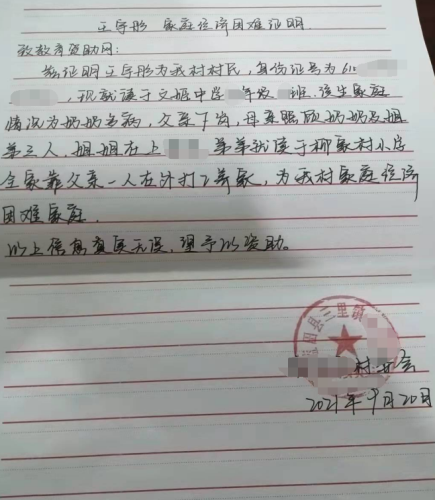 王学彤 家庭经济困难证明
致教考资助网:
兹证明王学彤为我村村民,身份证号为61
,现就读于文姬中学 年级 班,该生家庭
情况为奶奶老病,父亲下岗,母亲照顾奶奶及姐
弟三人,姐姐在上 弟弟就读于柳家村小学
全家靠父亲一人在外打工养家,为我村家庭经济
困难家庭.
以上信息真实无误,望予以资助。
县三里镇
村委会
2021年9月20日